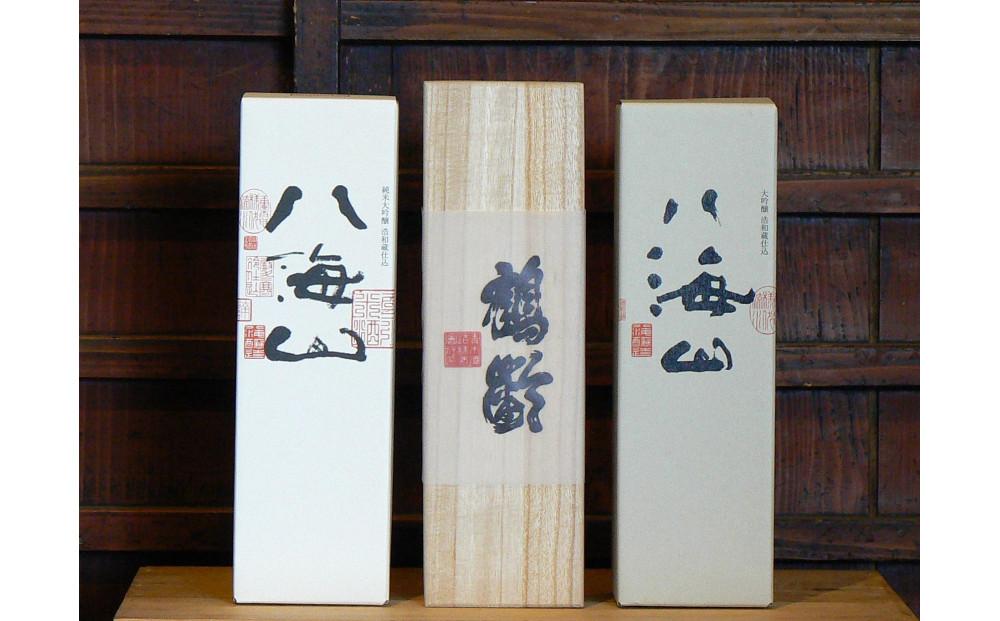 八海山
純米大吟醸 浩和蔵仕込
鶴齢
八海山
大吟醸 浩和蔵仕込